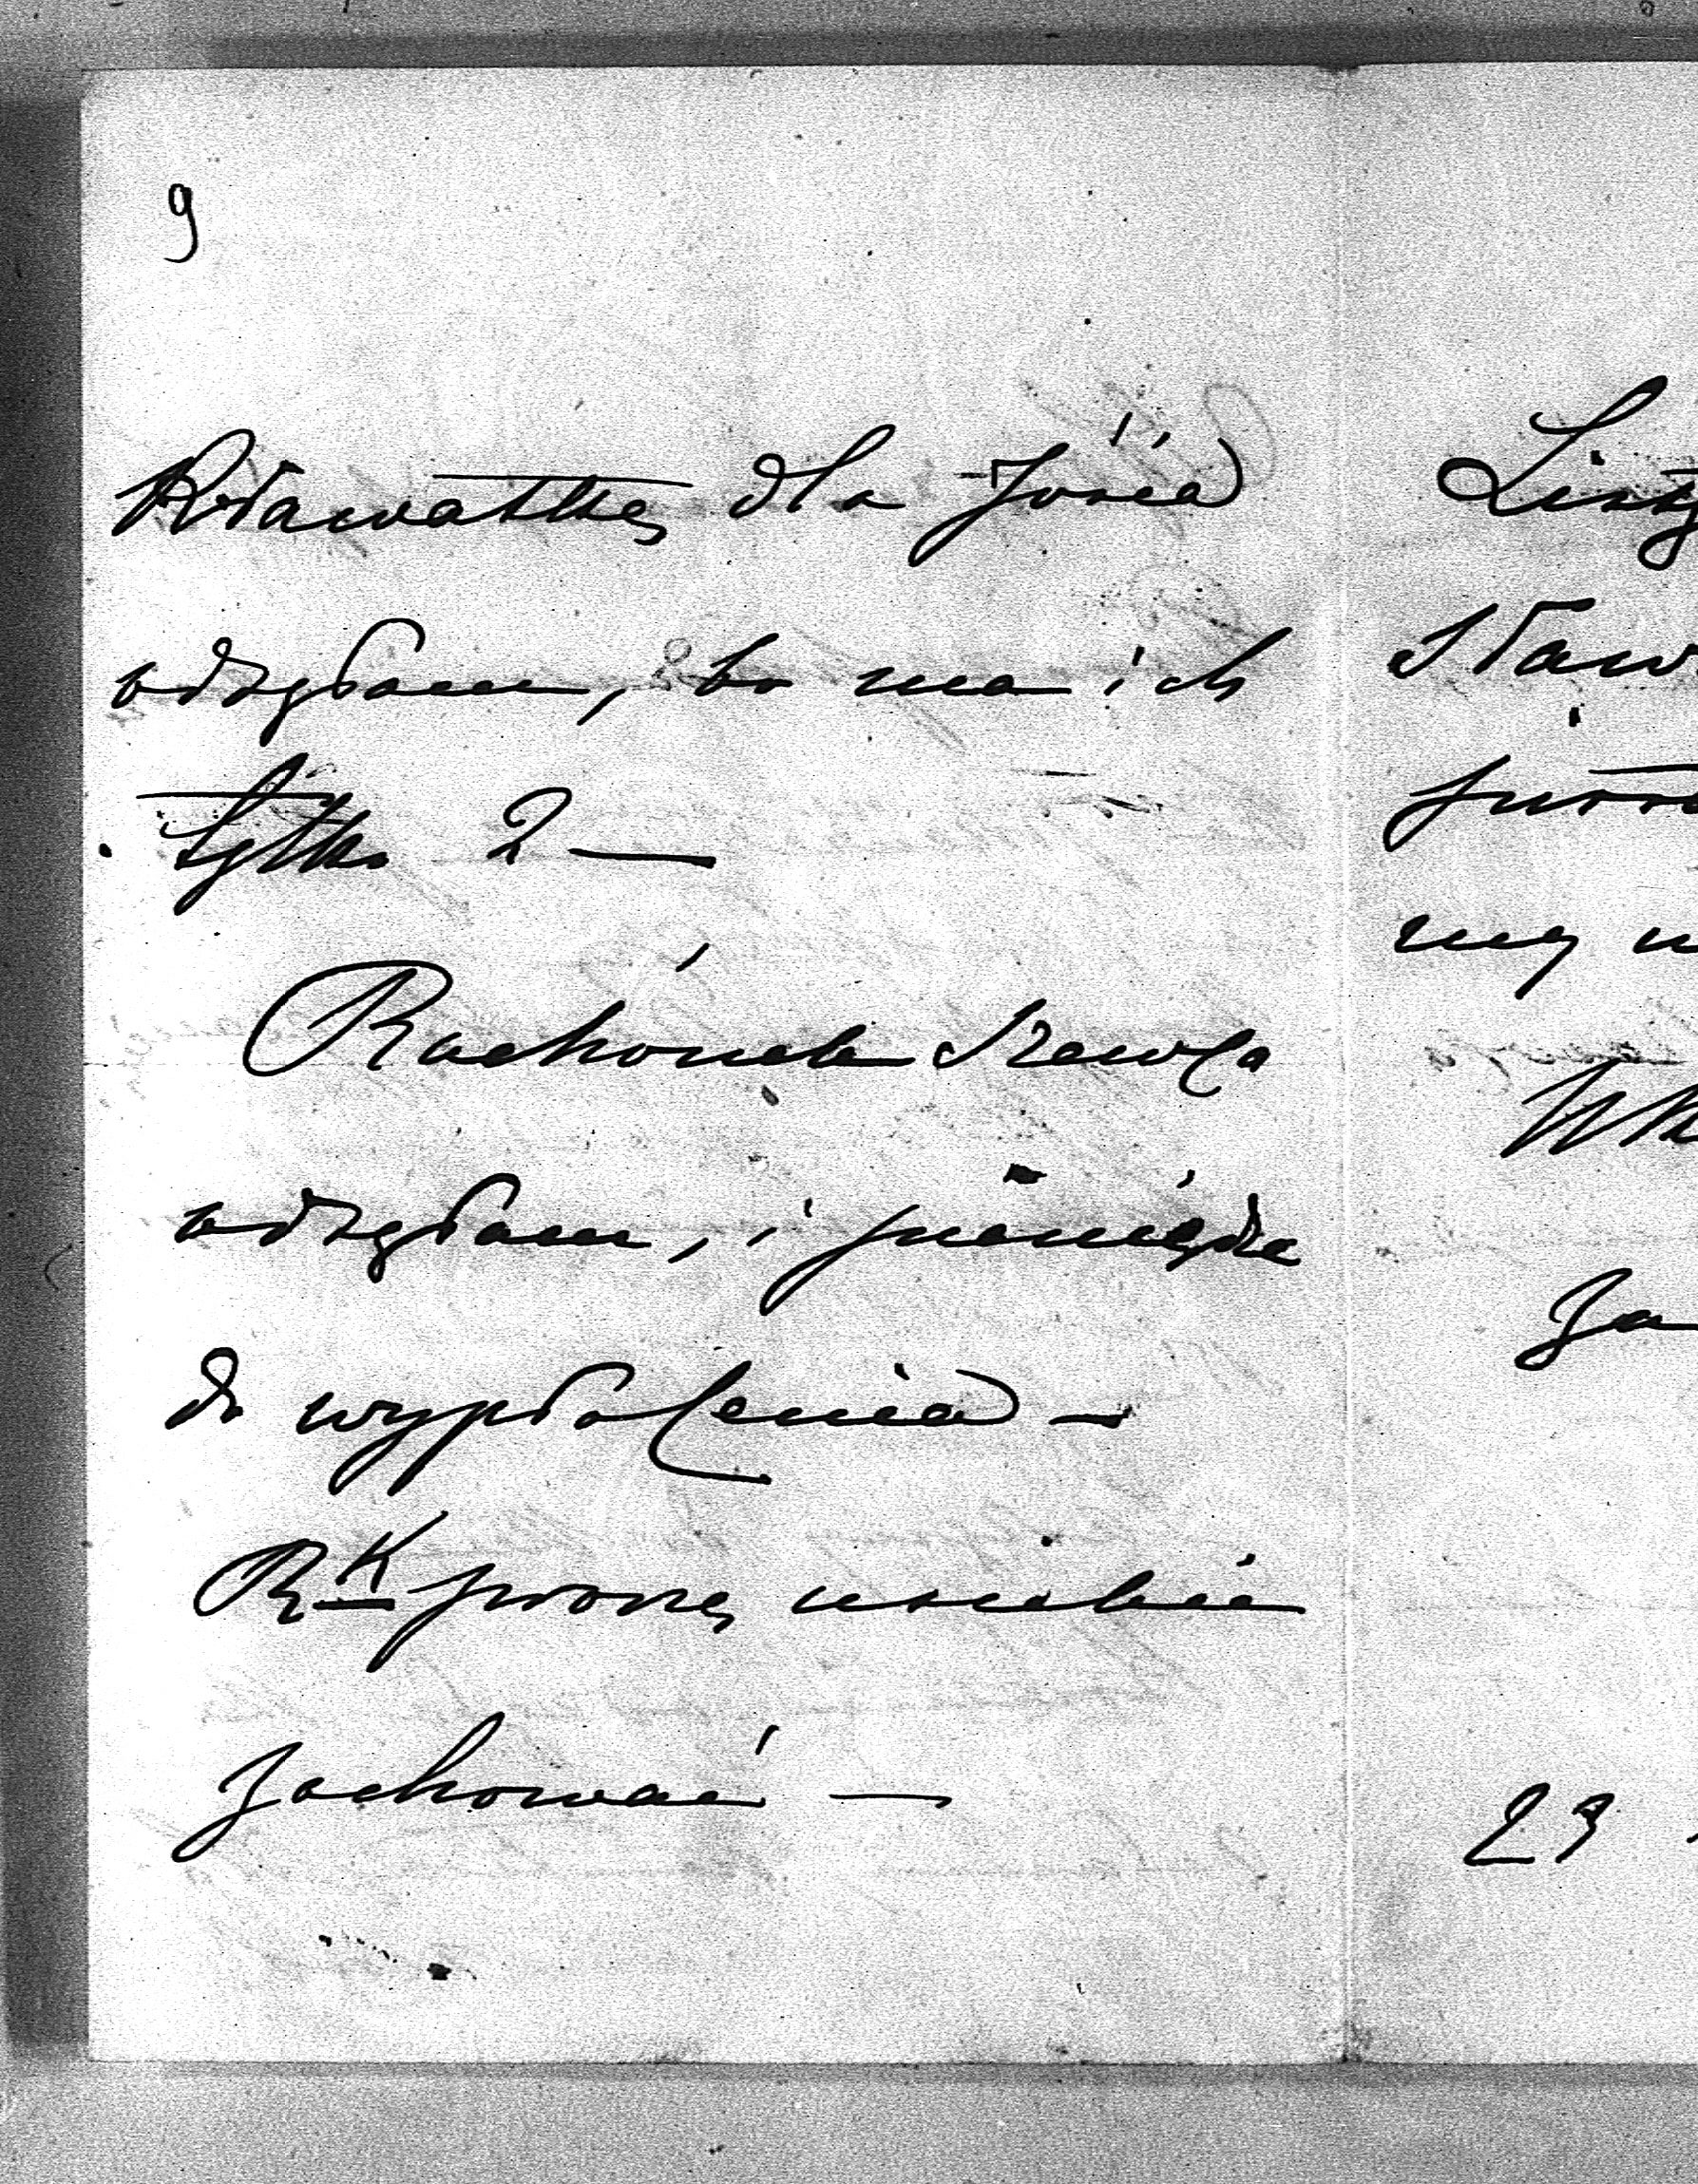 9
Krawatkę dla Józia
odsyłam, bo ma ich
tylko 2 —
Rachónek Szewca
odsyłam, i pieniądze
do wypłacenia —
Rk proszę u siebie
zachować —
List
staw
my
Za
23